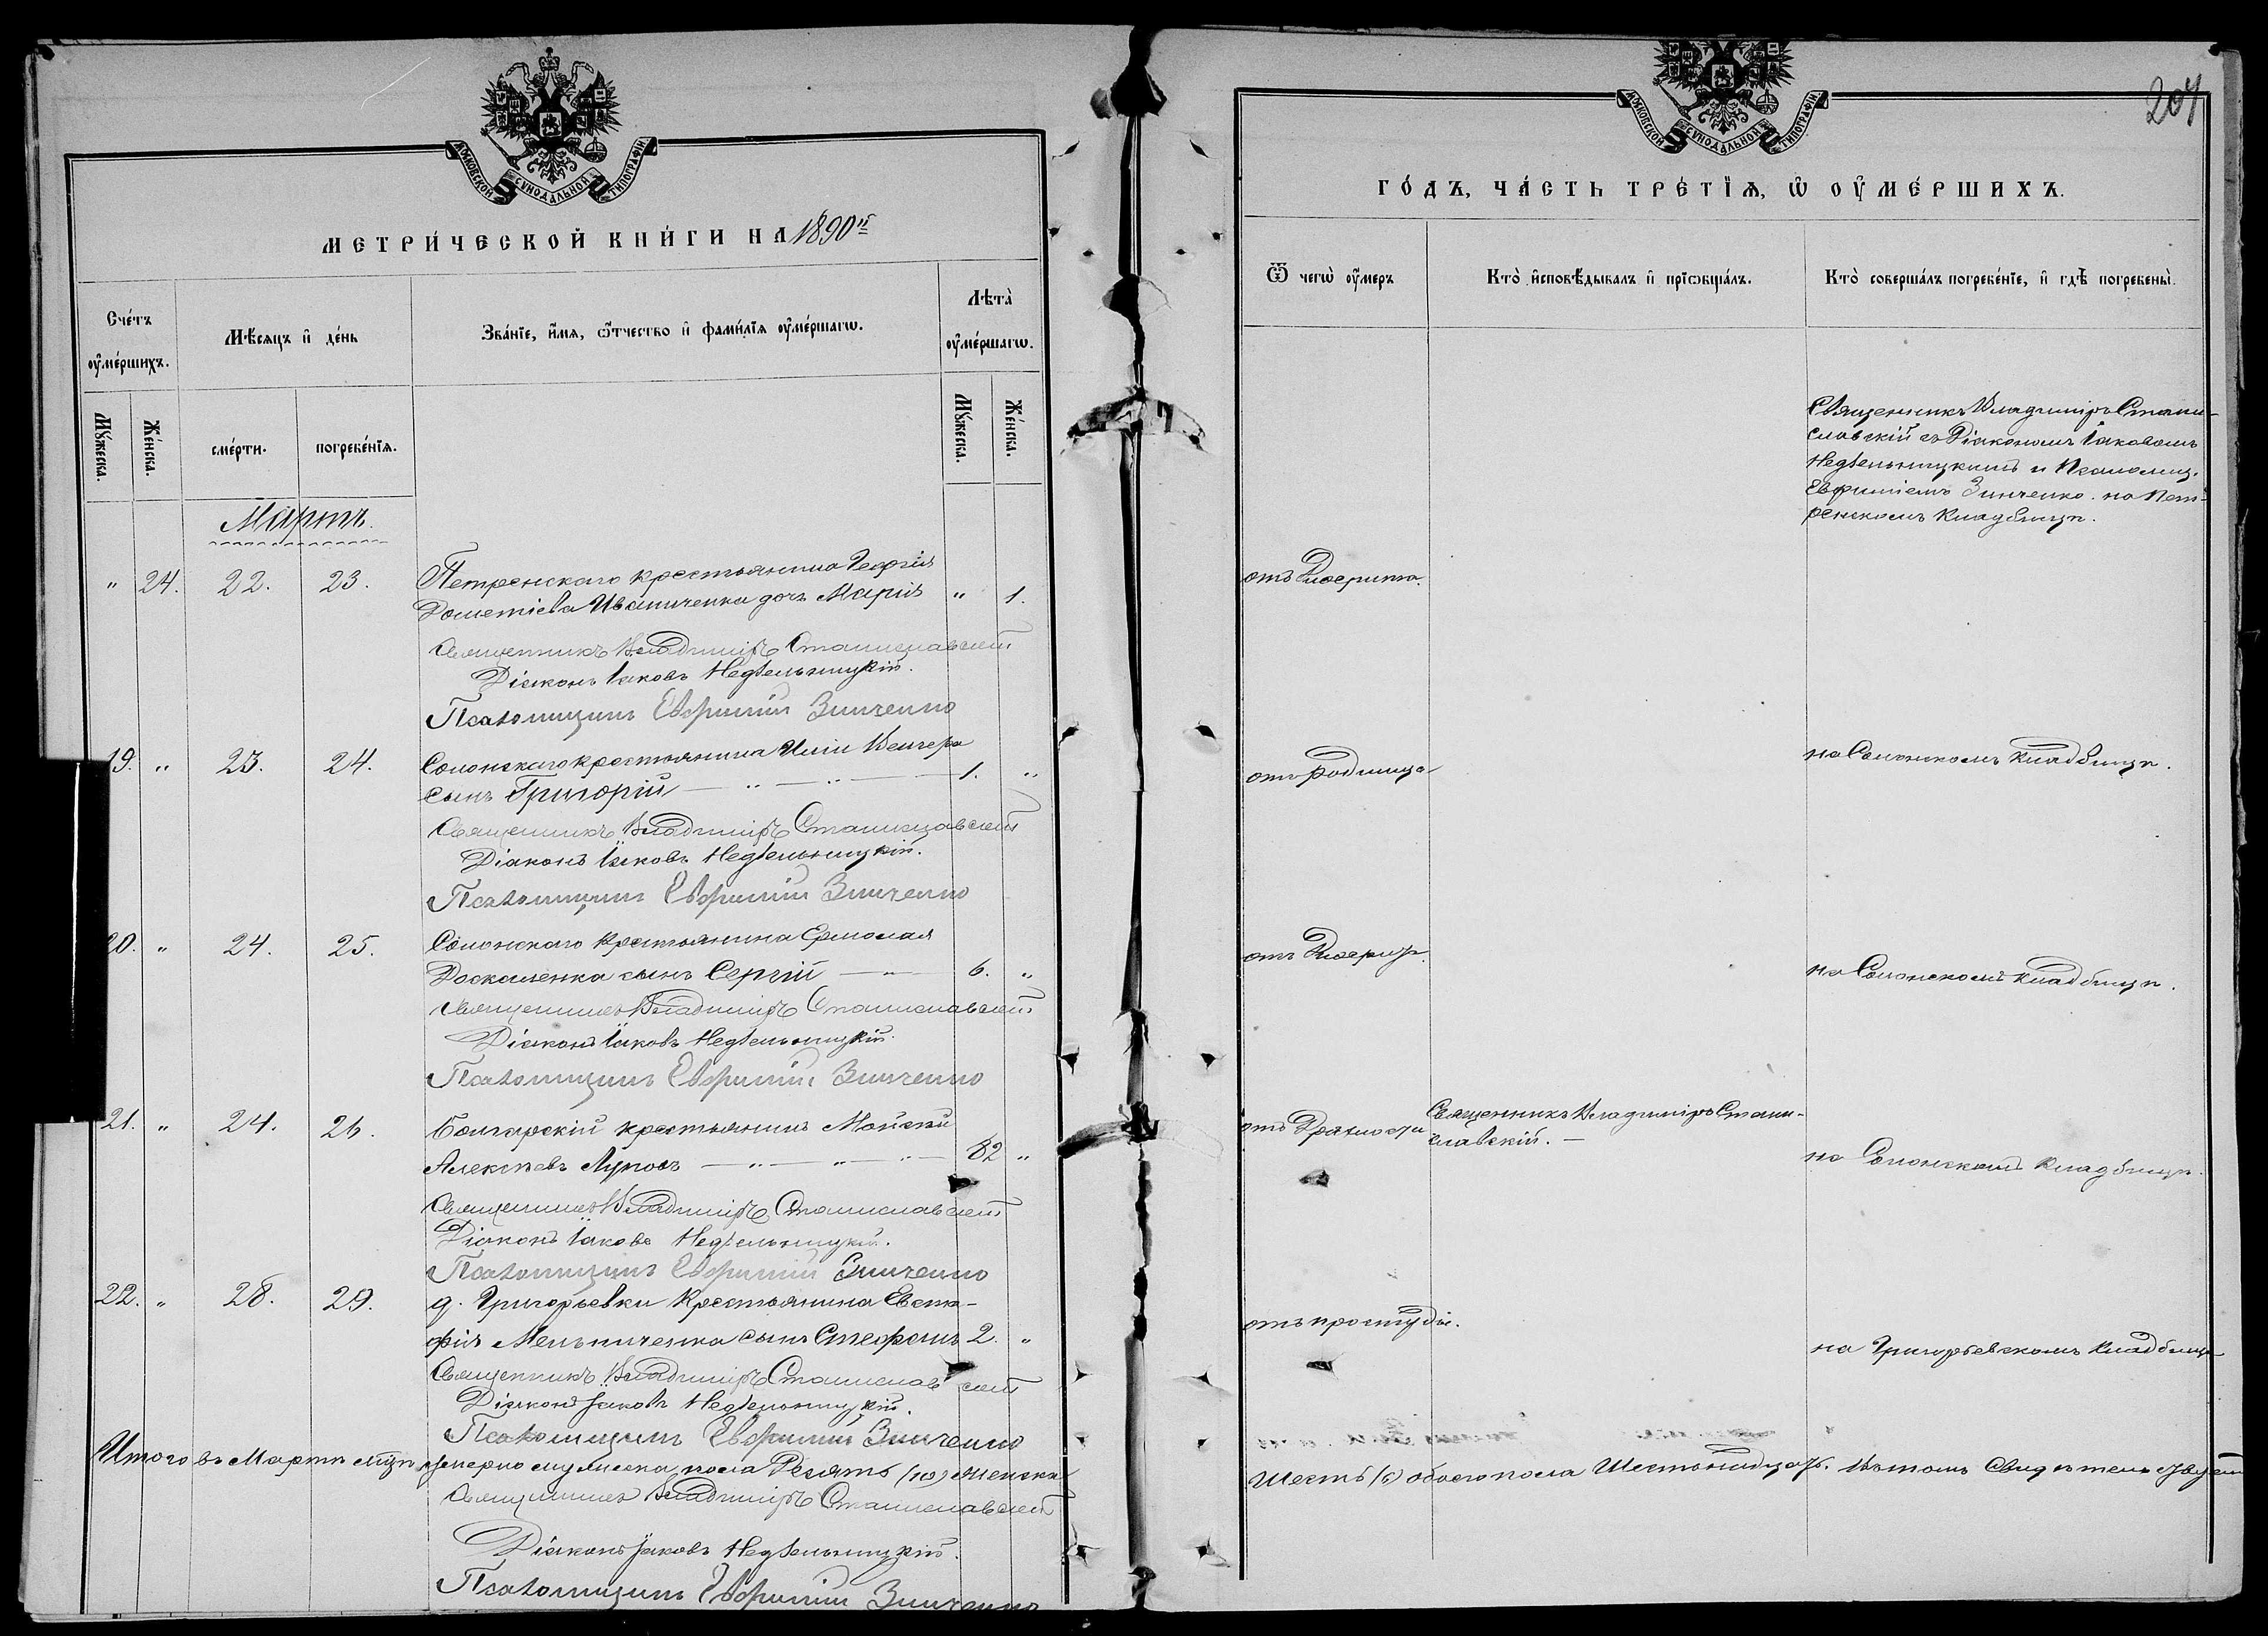 МОСКОВСКОЙ СѴНОДАЛЬНОЙ ТИПОГРАФІИ
МЕТРИ́ЧЕСКОЙ КНИ́ГИ НА 1890й
Сче́тъ оу҆ме́ршихъ.
Мѣ́сяцъ и҆ де́нь
Зва́нїе, и҆́мя, ѻ҆́тчество и҆ фами́лїя оу҆ме́ршагѡ.
Лѣта̀ оу҆ме́ршагѡ.
Мꙋ́жеска.
Же́нска.
сме́рти.
погребе́нїя.
Мꙋ́жеска.
Же́нска.
Мартъ.
" 24. 22. 23. Петренскаго крестьянина Георгія
Дометіева Иваниченка дочь Марія " 1.
Священникъ Владиміръ Станиславскій
Діаконъ Іаковъ Недѣльницкій.
Псаломщикъ Евфимій Зинченко
19. " 23. 24. Солонскаго крестьянина Иліи Венгера
сынъ Григорій — " — " — 1. "
Священникъ Владиміръ Станиславскій
Діаконъ Іаковъ Недѣльницкій.
Псаломщикъ Евфимій Зинченко
20. " 24. 25. Солонскаго крестьянина Ермолая
Доскаленка сынъ Сергій — " — 6. "
Священникъ Владиміръ Станиславскій
Діаконъ Іаковъ Недѣльницкій.
Псаломщикъ Евфимій Зинченко
21. " 24. 26. Болгарскій крестьянинъ Мойсей
Алексѣевъ Луповъ — " — " — " — 82 "
Священникъ Владиміръ Станиславскій
Діаконъ Іаковъ Недѣльницкій.
Псаломщикъ Евфимій Зинченко
22. " 28. 29. д. Григорьевки крестьянина Евста-
фія Мельниченка сынъ Стефанъ 2. "
Священникъ Владиміръ Станиславскій
Діаконъ Іаковъ Недѣльницкій.
Псаломщикъ Евфимій Зинченко
Итого въ Мартѣ мцѣ умерло мужеска пола Десять (10) женска
Священникъ Владиміръ Станиславскій
Діаконъ Іаковъ Недѣльницкій.
Псаломщикъ Евфимій Зинченко
207
МОСКОВСКОЙ СѴНОДАЛЬНОЙ ТИПОГРАФІИ
ГО́ДЪ, ЧА́СТЬ ТРЕ́ТЇѦ, Ѡ҆ ОУ҆МЕ́РШИХЪ.
Ѿ чегѡ̀ оу҆́меръ
Кто̀ и҆сповѣ́дывалъ и҆ прїѡбща́лъ.
Кто̀ соверша́лъ погребе́нїе, и҆ гдѣ̀ погребены̀.
Священникъ Владиміръ Стани-
славскій съ Діакономъ Іаковомъ
Недѣльницкимъ и Псаломщ.
Евфиміемъ Зинченко. на Пет-
ренскомъ кладбищѣ.
отъ Дифирита.
отъ родимца
на Солонскомъ кладбищѣ.
отъ Дифирит.
на Солонскомъ кладбищѣ.
отъ Дряхлости
Священникъ Владиміръ Стани-
славскій. —
на Солонскомъ кладбищѣ.
отъ простуды.
на Григорьевскомъ кладбищѣ
Шесть (6) обоего пола Шестьнадцать. Въ томъ свидѣтельствуемъ